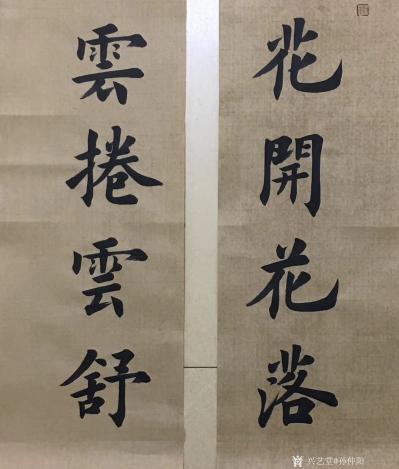 花開花落
雲捲雲舒
兴艺堂@孙仲阳